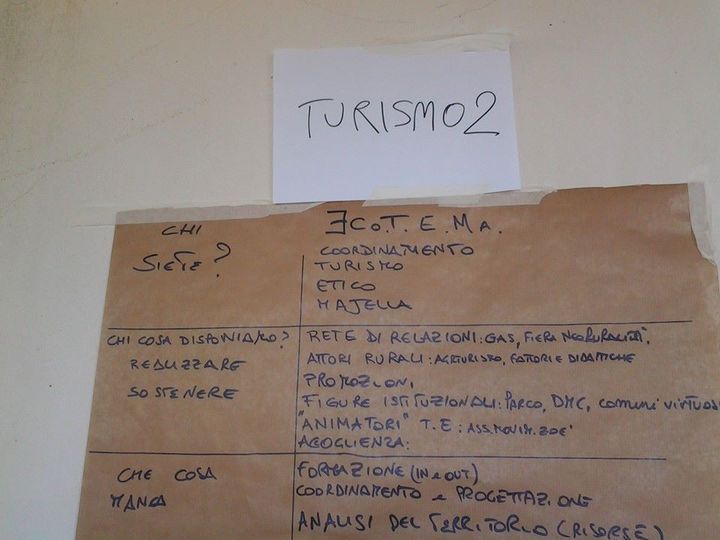 TURISMO2
CHI
SIETE?
ECO.T.E.MA.
COORDINAMENTO
TURISMO
ETICO
MAJELLA
CHI COSA DISPONIAMO?
REALIZZARE
SOSTENERE
RETE DI RELAZIONI: GAS, FIERA NEORURALITÀ,
ATTORI RURALI: AGRITURISMO, FATTORIE DIDATTICHE
PROMOZIONI
FIGURE ISTITUZIONALI: PARCO, DMC, COMUNI VIRTUOSI
"ANIMATORI" T.E: ASS.MOVIM.ZOE'
ACCOGLIENZA:
CHE COSA
MANCA
FORMAZIONE (IN e OUT)
COORDINAMENTO e PROGETTAZIONE
ANALISI DEL TERRITORIO (RISORSE)